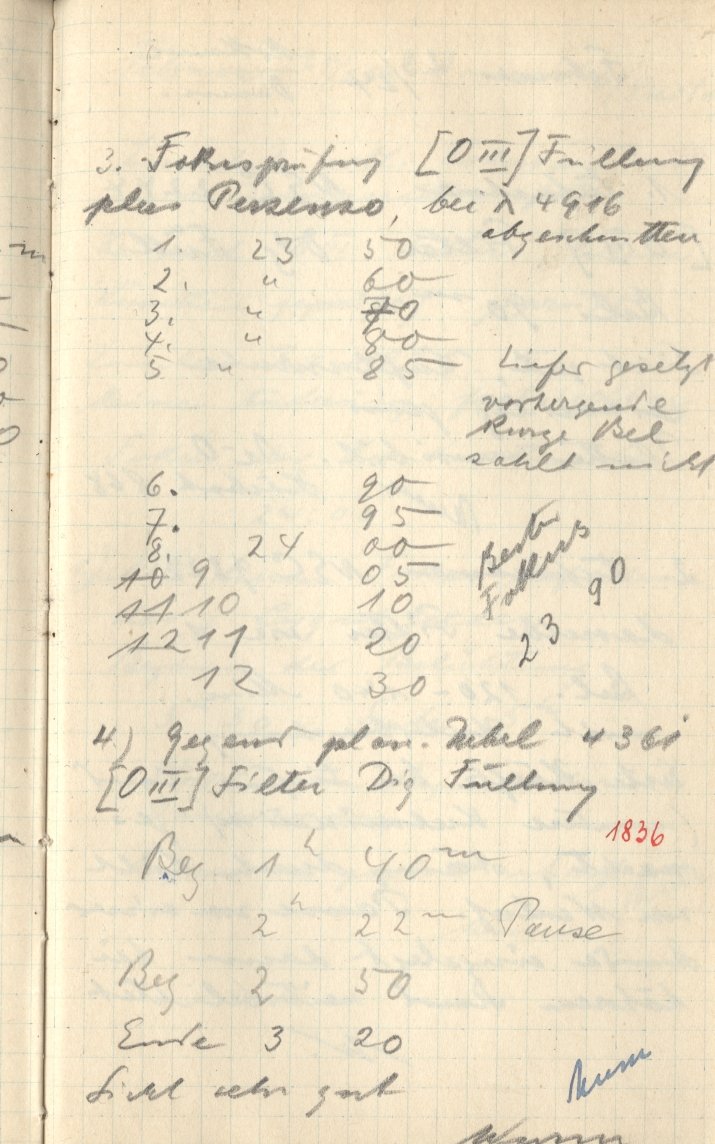 3. Fokusprüfung [O III] Füllung
plus Perzenso, bei λ 4916
abgeschnitten
1. 23 50
2. " 60
3. " 70
4. " 80
5. " 85 tiefer gesetzt
vorhergende
kurze Bel
zählt nicht
6. 90
7. 95
8. 24 00
10 9 05
11 10 10
12 11 20
12 30
Beste
Fokus
23 90
4.) Gegend plan. Nebel 4361
[O III] Filter Dig Füllung
1836
Beg 1h 40m
2h 22m Pause
Beg 2 50
Ende 3 20
Sicht sehr gut
Wurm
Wurm